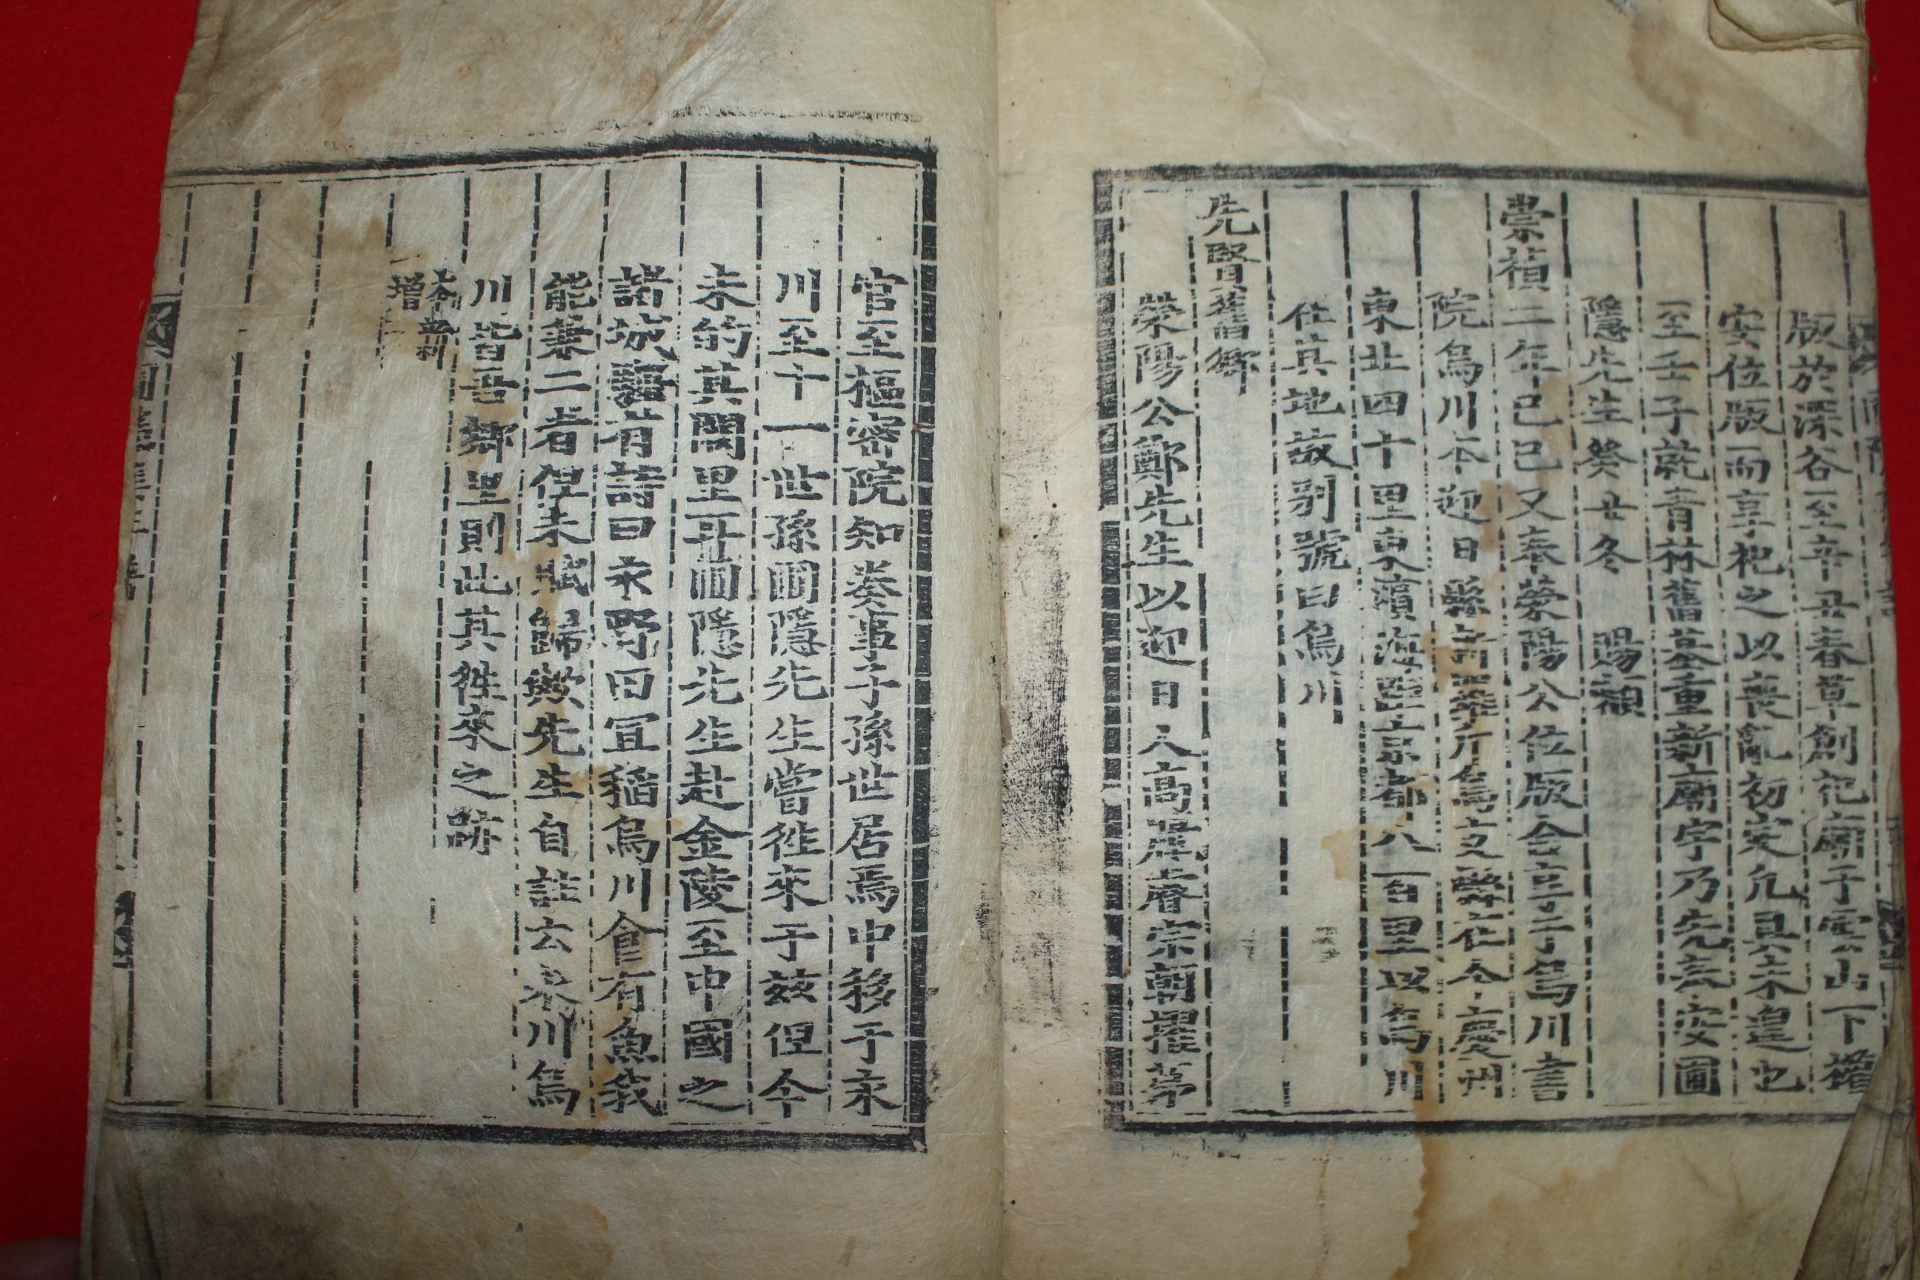 版於深谷至辛丑春草創祀廟于定山下襠
安位版而享祀之以喪亂初定凡具未遑也
至壬子就青林舊基重新廟宇乃先安圃
隱先生癸丑冬 賜額
崇禎二年己巳又奉榮陽公位版合享于烏川書
院烏川本迎日縣新羅斤烏支縣在今慶州
東北四十里東濱海距京都八百里以烏川
在其地故別號曰烏川
先賢舊鄉
榮陽公鄭先生以迎日人高麗睿宗朝擢第
官至樞密院知奏事子孫世居焉中移于永
川至十一世孫圃隱先生嘗徃來于玆但今
未的其閭里耳圃隱先生赴金陵至中國之
諸城驛有詩曰永野曰宜稻烏川食有魚我
能兼二者但未賦歸歟先生自註云永川烏
川皆吾鄉里則此其徃來之跡
本新刊
增
圃隱集